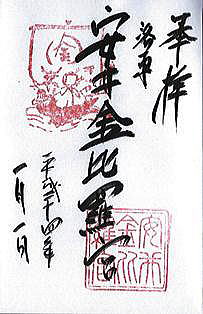 奉拝
洛東
安井金比羅宮
平成二十四年
一月一日
金
安井
金比
羅宮